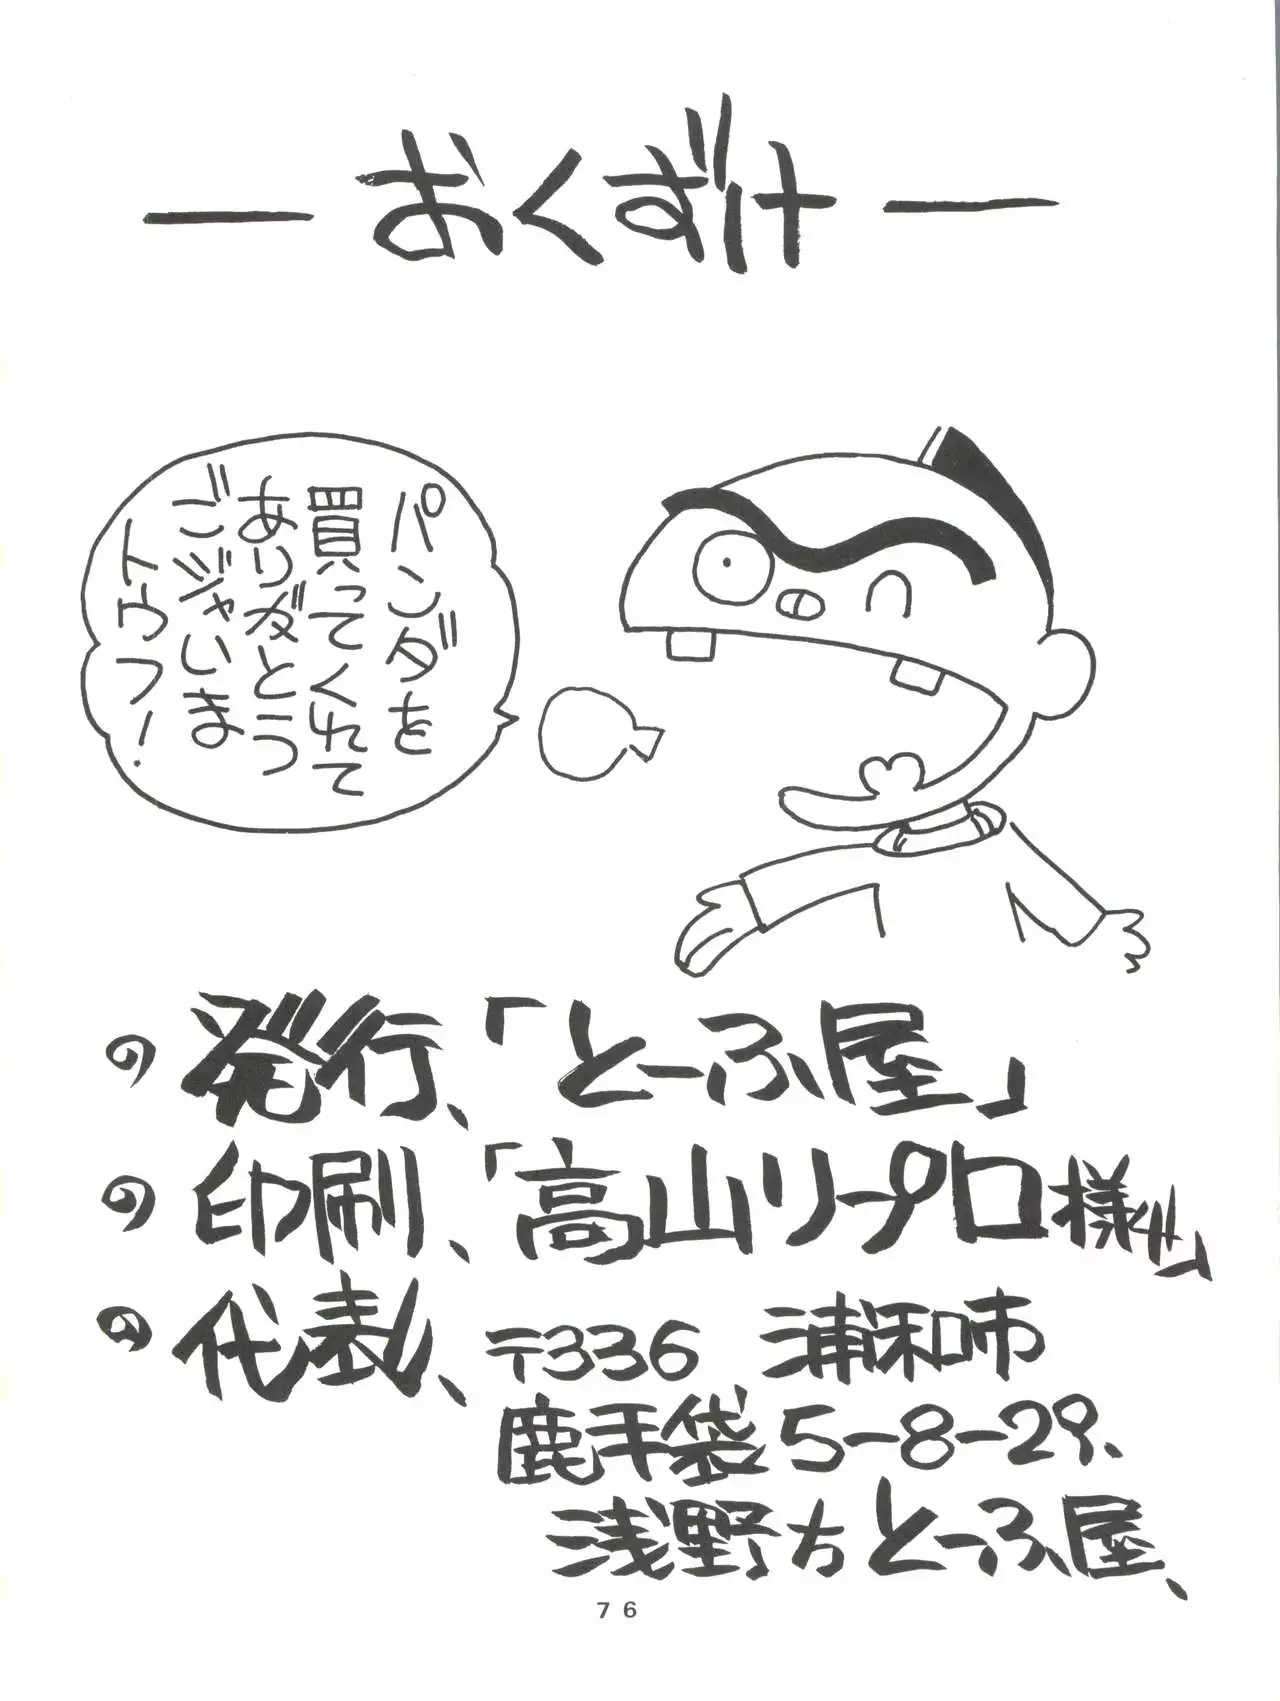 ―おくずけ―
パンダを
買ってくれて
ありがとう
ごジャいま
トウフ!
の発行、「とーふ屋」
の印刷、「高山リープロ様だ」
の代表、〒336 浦和市
鹿手袋5-8-29、
浅野方とーふ屋、
76